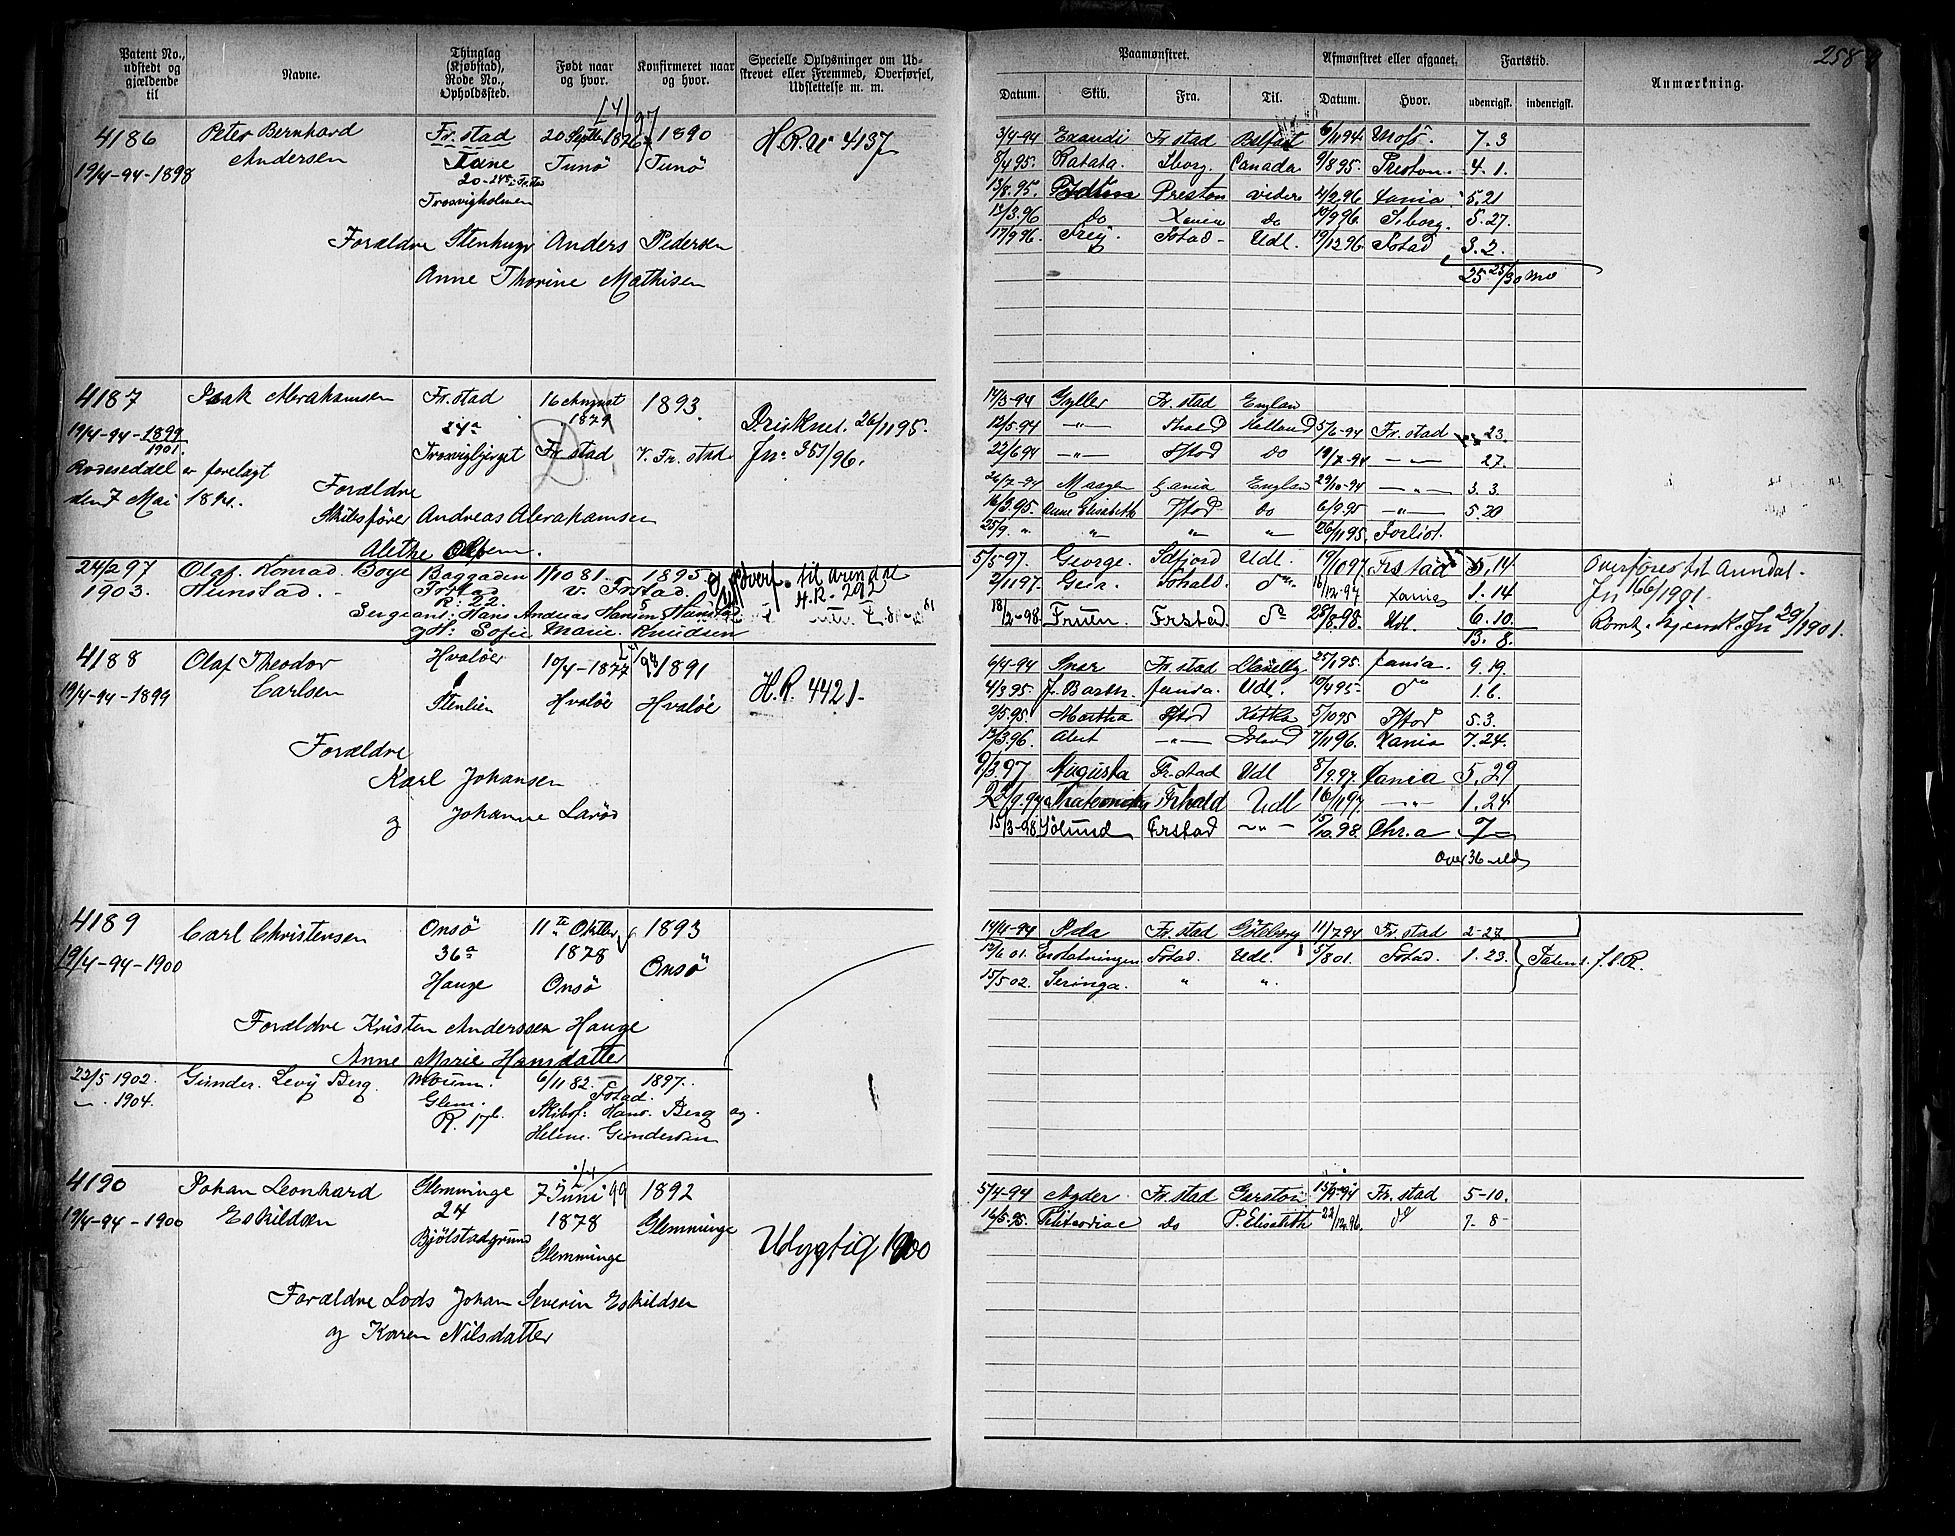 Patent No., udstedt og gjældende til
Navne.
Thinglag (Kjøbstad), Rode No., Opholdssted.
Født naar og hvor.
Konfirmeret naar og hvor.
Specielle Oplysninger om Udstrevet eller Fremmed, Overførsel, Udslettelse m. m.
Paamønstret.
Datum. Skib. Fra. Til.
Afmønstret eller afgaaet.
Datum. Hvor.
Fartstid.
udenrigsk. indenrigsk.
Anmærkning.
258
4186 Peter Bernhard Fr. stad 20 Septbr 1876 1890 H.R. N 4137
Andersen Tune Tunø Tunø
19/4-94-1898 20-248 Fr.stad
Trosvigholmen
Forældre Stenhugr Anders Pedersen
Anne Thorine Mathisen
3/4-94 Exaudi Fr stad Belfast 6/11 94 Moss 7.3
7/4 95. Ratata. Sborg. Canada 9/8 95. Preston. 4.1.
13/8.95. Preston videre 2/2.96 5.21
12/3.96 do Xania do 10/9 96 S.borg. 5.27.
17/9 96. Frey. Fstad Udl. 19/12 96 Fstad 3.2.
25 25/30 md
4187 Isak Abrahamsen Fr. stad 16 August 1879 1893. Drisknet. 26/11 95.
19/4-94-1899 1901. Trosvigbjerget Fr stad V. Fr. stad Jn. 351/96.
Rodeseddel er forelagt
den 7 Mai 1894.
Forældre
Skibsfører Andreas Abrahamsen
Alethe Olsen.
17/3-94 Gyller Fr. stad England
12/5 94 —"— Holland 5/6-94 Fr. stad 23.
22/6 94 —"— Fstad do 19/7-94 —"— 27.
26/7-94 Maagen Xania England 29/10-94 —"— 3.3.
16/3.95. Anne Elisabeth Fstad do 6/9.95 —"— 5.20
25/9. " " " " 26/11 95. Forlist.
24/2 97 Olaf. Konrad. Boye Baggaden 1/10 81. 1895 Overf. til Arendal
1903. Hunstad. Frstad V. Frstad. H.R. 292
R: 22.
Sergeant: Hans Andreas Hansen Hunstad
og H: Sofie Marie Knudsen
5/5-97. George. Udl. 19/10 97. Frstad 5.14 Overføres til Arendal.
2/11 97. Geir. Fshald. do 16/12-97 Xania 1.14 Jn 166/1901.
18/2-98. Fruen Frstad do 28/8.98. Udl. 6.10. Jn 29/1901.
13.8.
4188 Olaf Theodor Hvaløer 10/4-1877 1891 H.R. 4421.
19/4-94-1899 Carlsen Stenlien Hvaløe Hvaløe
Forældre
Karl Johansen
og Johanne Larød
6/4-94 Snar Fr. stad Llanelly 25/1 95. Xania. 9.19.
4/3 95. J. Barth. Xania. Udl. 10/4 95 do 1.6.
2/5.95. Martha Fstad Kotka 5/10 95 Fstad 5.3.
13/3.96. Alert —"— 7/11 96. Xania 7.24.
9/3.97 Augusta Fr. stad Udl 8/9.97. Xania 5.29
2/9.97 Frhald Udl 16/11 97 —"— 1.24
15/3-98 Sölund Frstad —"— 15/10.98. Chr.a 7
Over 36 md
4189 Carl Christensen Onsø 11te Oktbr 1893
19/4-94-1900 36a 1878 Onsø
Hauge Onsø
Forældre Kristen Anderssen Hauge
Anne Marie Hansdatter
14/4-94 Ada Fr. stad Göteborg 11/7 94 Fr. stad 2-27
12/6 01. Erstatningen Fstad. Udl. 5/8 01. Fstad. 1.23. Patent. f.l.R.
15/5 02. Seringa. " ".
22/5 1902. Gunder. Levy Berg. Mburm. 6/11 82. 1897.
—. 1904. Glem. Fstad.
R. 17b. Skibsf: Hans. Berg og.
Helene. Gundersen
4190 Johan Leonhard Glemminge 7 Juni 99 1892
19/4-94-1900 Eskildsen 24 1878 Glemminge Udygtig 1900
Bjølstadgrund Glemminge
Forældre Lods Johan Severin Eskildsen
og Karen Nilsdatter
5/4-94 Agder Fr. stad 15/9-94 Fr. stad 5-10.
16/5.95. do P. Elisabeth 22/12.96. do 7-8